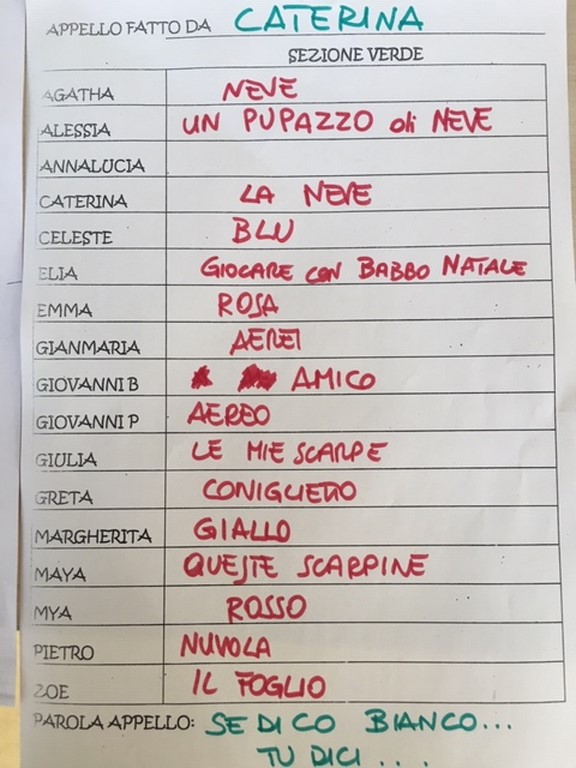 APPELLO FATTO DA CATERINA
SEZIONE VERDE
AGATHA NEVE
ALESSIA UN PUPAZZO di NEVE
ANNALUCIA
CATERINA LA NEVE
CELESTE BLU
ELIA GIOCARE CON BABBO NATALE
EMMA ROSA
GIANMARIA AEREI
GIOVANNI B AMICO
GIOVANNI P AEREO
GIULIA LE MIE SCARPE
GRETA CONIGLIETTO
MARGHERITA GIALLO
MAYA QUESTE SCARPINE
MYA ROSSO
PIETRO NUVOLA
ZOE IL FOGLIO
PAROLA APPELLO: SE DICO BIANCO...
TU DICI....